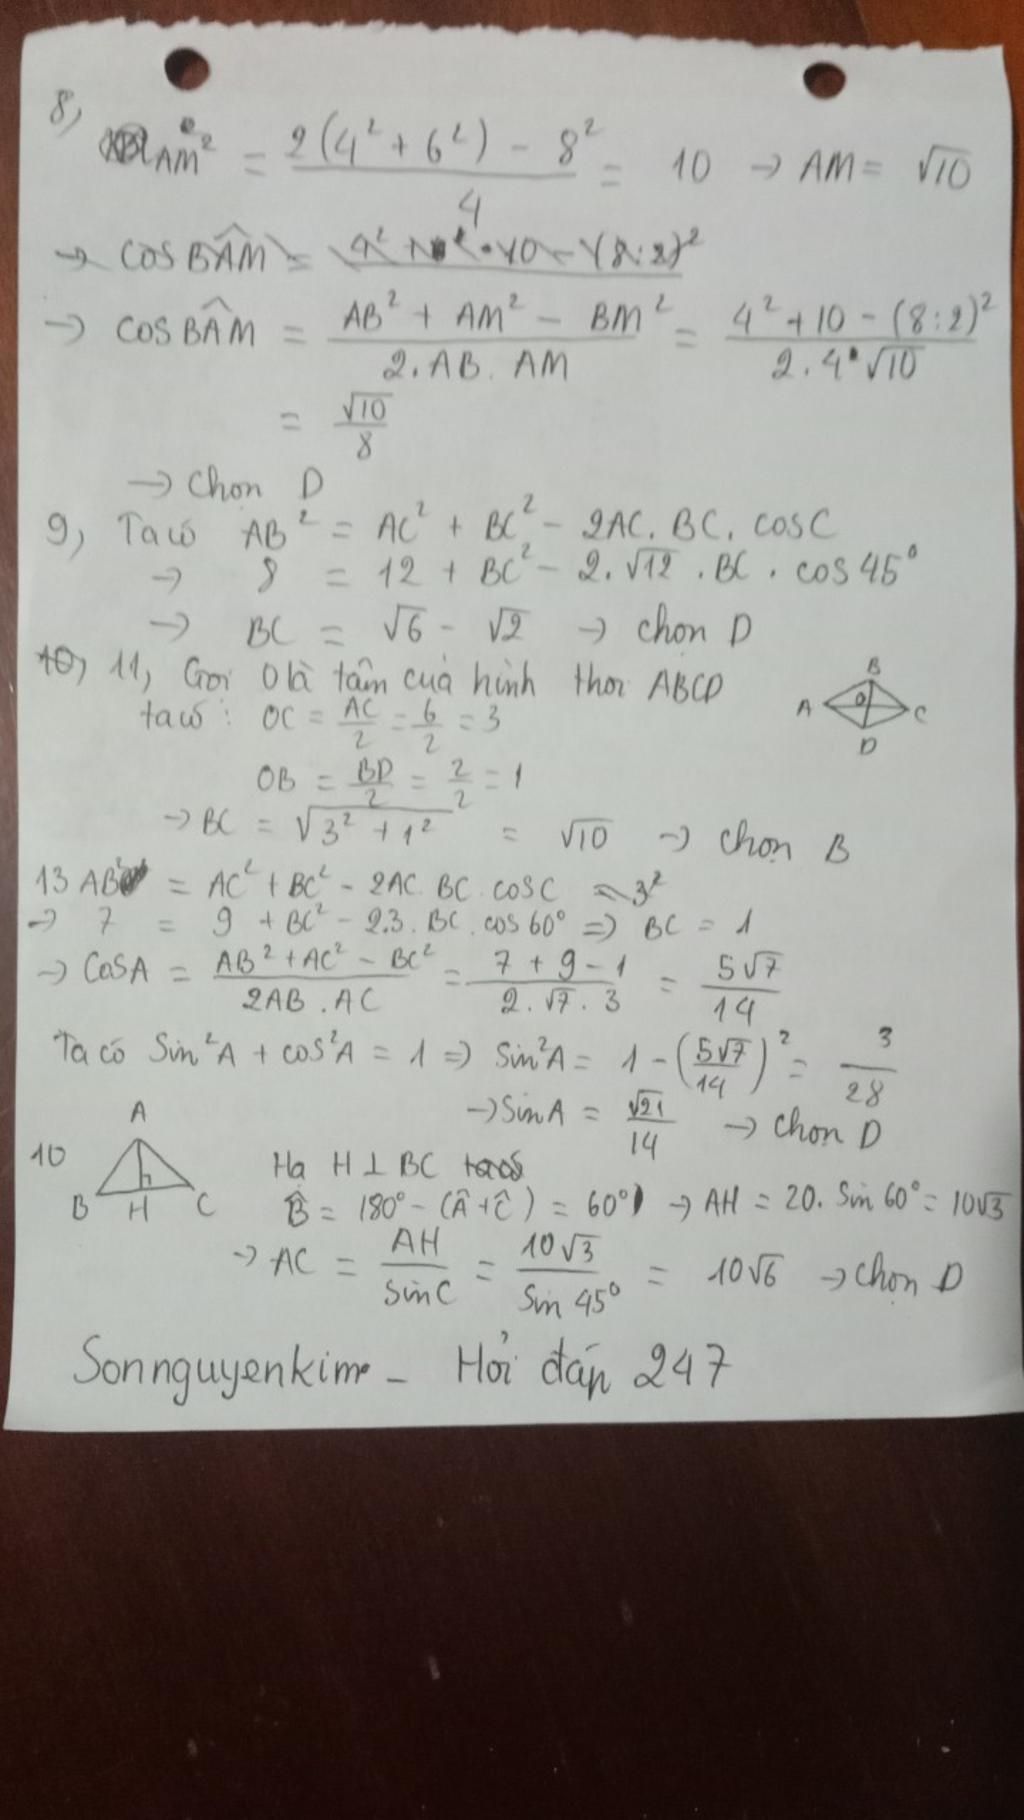 8,
AM² = (2(4² + 6²) - 8²)/4 = 10 → AM = √10
→ cos BÂM = (AB² + AM² - BM²)/(2.AB.AM) = (4² + 10 - (8:2)²)/(2.4.√10)
= √10/8
→ Chọn D
9, Ta có AB² = AC² + BC² - 2AC.BC.cosC
→ 8 = 12 + BC² - 2.√12.BC.cos 45°
→ BC = √6 - √2 → chọn D
11, Gọi O là tâm của hình thoi ABCD
ta có: OC = AC/2 = 6/2 = 3
OB = BD/2 = 2/2 = 1
→ BC = √(3² + 1²) = √10 → chọn B
B
A O C
D
13 AB² = AC² + BC² - 2AC.BC.cosC
→ 7 = 9 + BC² - 2.3.BC.cos60° => BC = 1
→ CosA = (AB² + AC² - BC²)/(2AB.AC) = (7 + 9 - 1)/(2.√7.3) = 5√7/14
Ta có Sin²A + cos²A = 1 => Sin²A = 1 - (5√7/14)² = 3/28
→ SinA = √21/14 → chọn D
10
A
B H C
Hạ H ⊥ BC
B̂ = 180° - (Â + Ĉ) = 60° → AH = 20.Sin60° = 10√3
→ AC = AH/sinC = 10√3/Sin45° = 10√6 → chọn D
Sonnguyenkim - Hỏi đáp 247